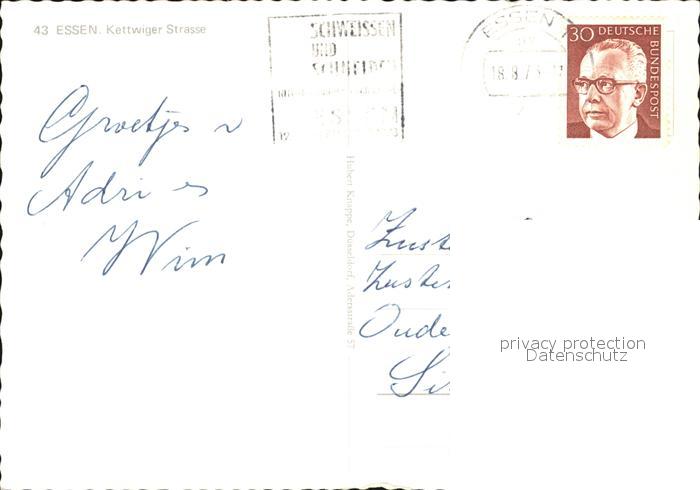 43 ESSEN. Kettwiger Strasse
SCHWEISSEN
UND
SCHNEIDEN
ESSEN
ESSEN
18.8.73
30 DEUTSCHE
BUNDESPOST
Groetjes v
Adri en
Wim
Hubert Knippe, Düsseldorf, Adersstraße 57
Zust
Zuster
Oude
privacy protection
Datenschutz